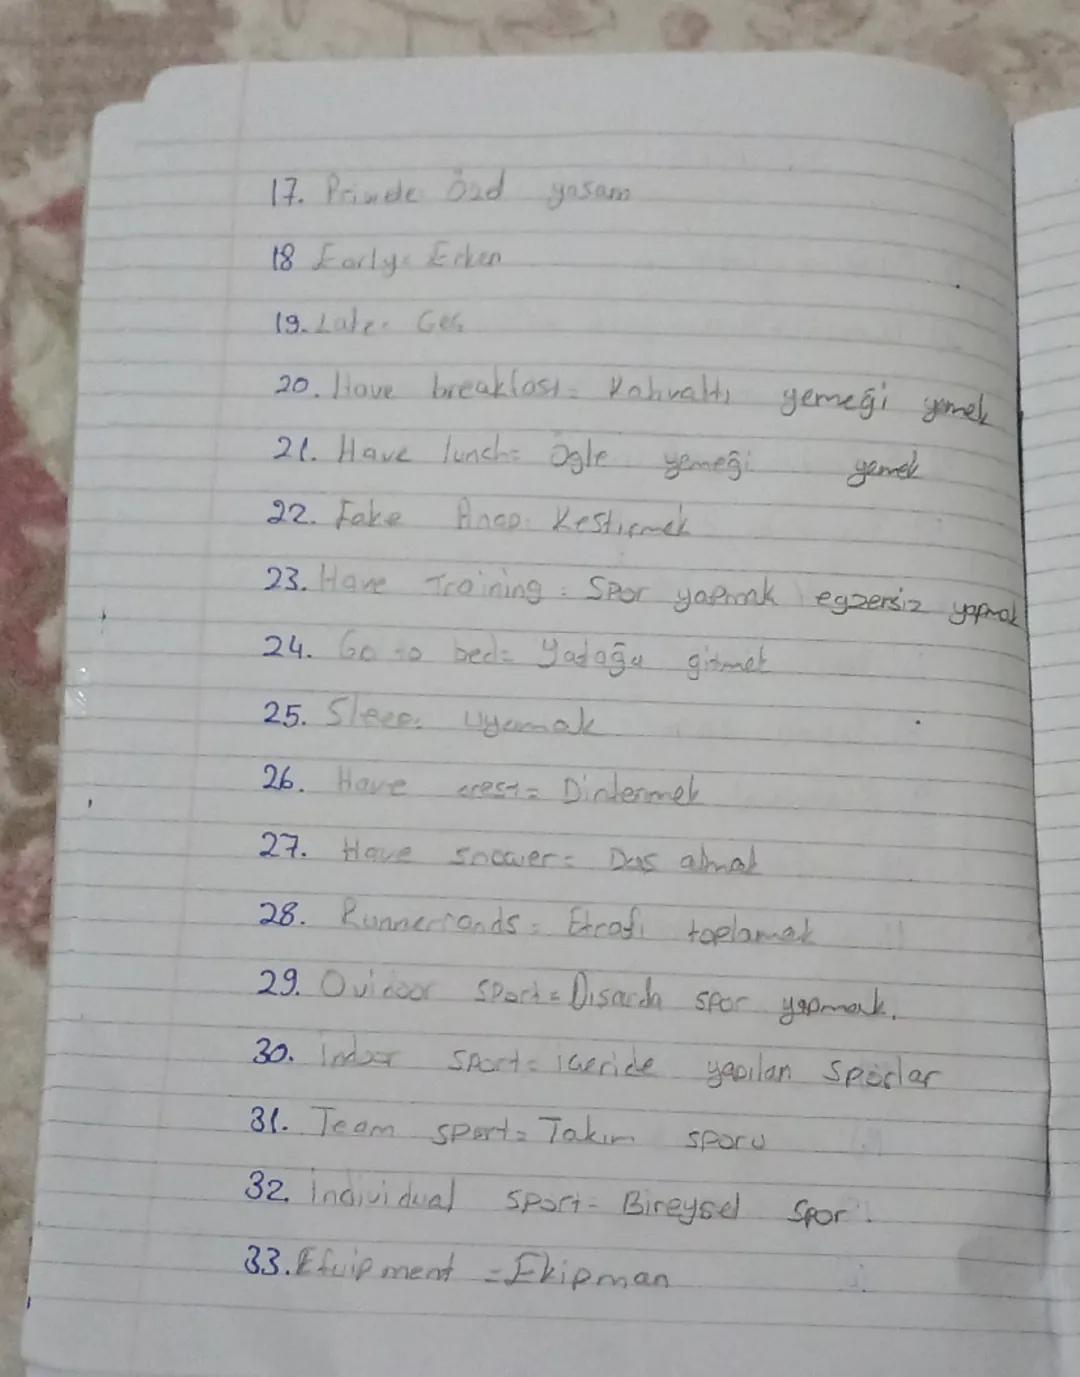 17. Priwde: Özd yasam
18 Early= Erken
19. Late= Geç
20. Have breakfast= Kahvaltı yemeği yemek
21. Have lunch= Ögle yemeği yemek
22. Take Anap: Kestirmek
23. Have Training: Spor yapmak egzersiz yapmak
24. Go to bed= Yatağa gitmek
25. Sleep: Uyumak
26. Have crest= Dinlenmek
27. Have shower= Dus almak
28. Runnerrands= Etrafı toplamak
29. Outdoor sport= Dısarda spor yapmak.
30. indoor sport= içeride yapılan sporlar
31. Team sport= Takım sporu
32. individual sport= Bireysel Spor.
33. Efuipment = Ekipman